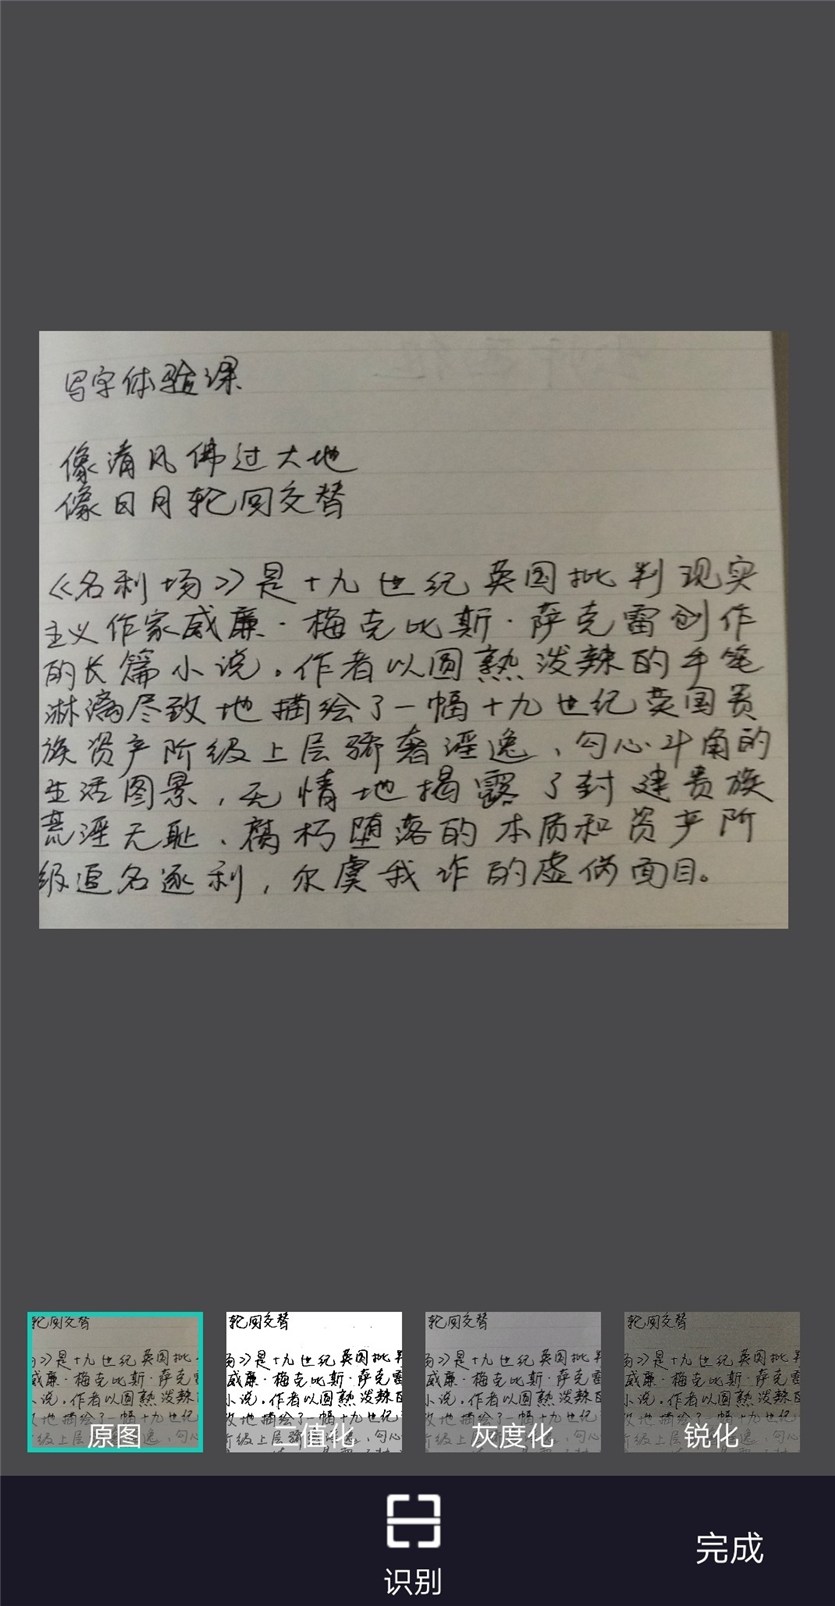 写字体验课
像清风佛过大地
像日月轮回交替
《名利场》是十九世纪英国批判现实
主义作家威廉·梅克比斯·萨克雷创作
的长篇小说。作者以圆熟泼辣的手笔
淋漓尽致地描绘了一幅十九世纪英国贵
族资产阶级上层骄奢淫逸、勾心斗角的
生活图景，无情地揭露了封建贵族
荒淫无耻、腐朽堕落的本质和资产阶
级追名逐利，尔虞我诈的虚伪面目。
轮回交替
场》是十九世纪英国批
威廉·梅克比斯·萨克雷
小说。作者以圆熟泼辣
致地描绘了一幅十九世纪
原图
轮回交替
场》是十九世纪英国批判
威廉·梅克比斯·萨克雷
小说。作者以圆熟泼辣的
致地描绘了一幅十九世纪
二值化
轮回交替
场》是十九世纪英国批判
威廉·梅克比斯·萨克雷
小说。作者以圆熟泼辣的
致地描绘了一幅十九世纪
灰度化
轮回交替
场》是十九世纪英国批判
威廉·梅克比斯·萨克雷
小说。作者以圆熟泼辣的
致地描绘了一幅十九世纪
锐化
识别
完成